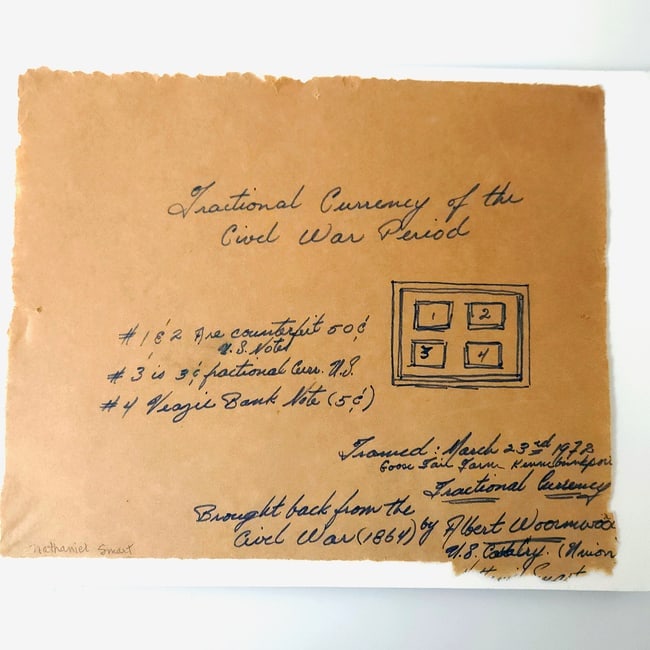 Fractional Currency of the
Civil War Period
1
2
3
4
# 1 & 2 Are counterfit 50¢
U.S. Notes
# 3 is 3¢ fractional Curr. U.S.
# 4 Veazie Bank Note (5¢)
Framed: March 23rd 1972
Goose Fair Farm Kennebunkpor
Fractional Currency
Brought back from the
Civil War (1864) by Albert Woormwood
U.S. Cavalry. (Union
Nathaniel Smart